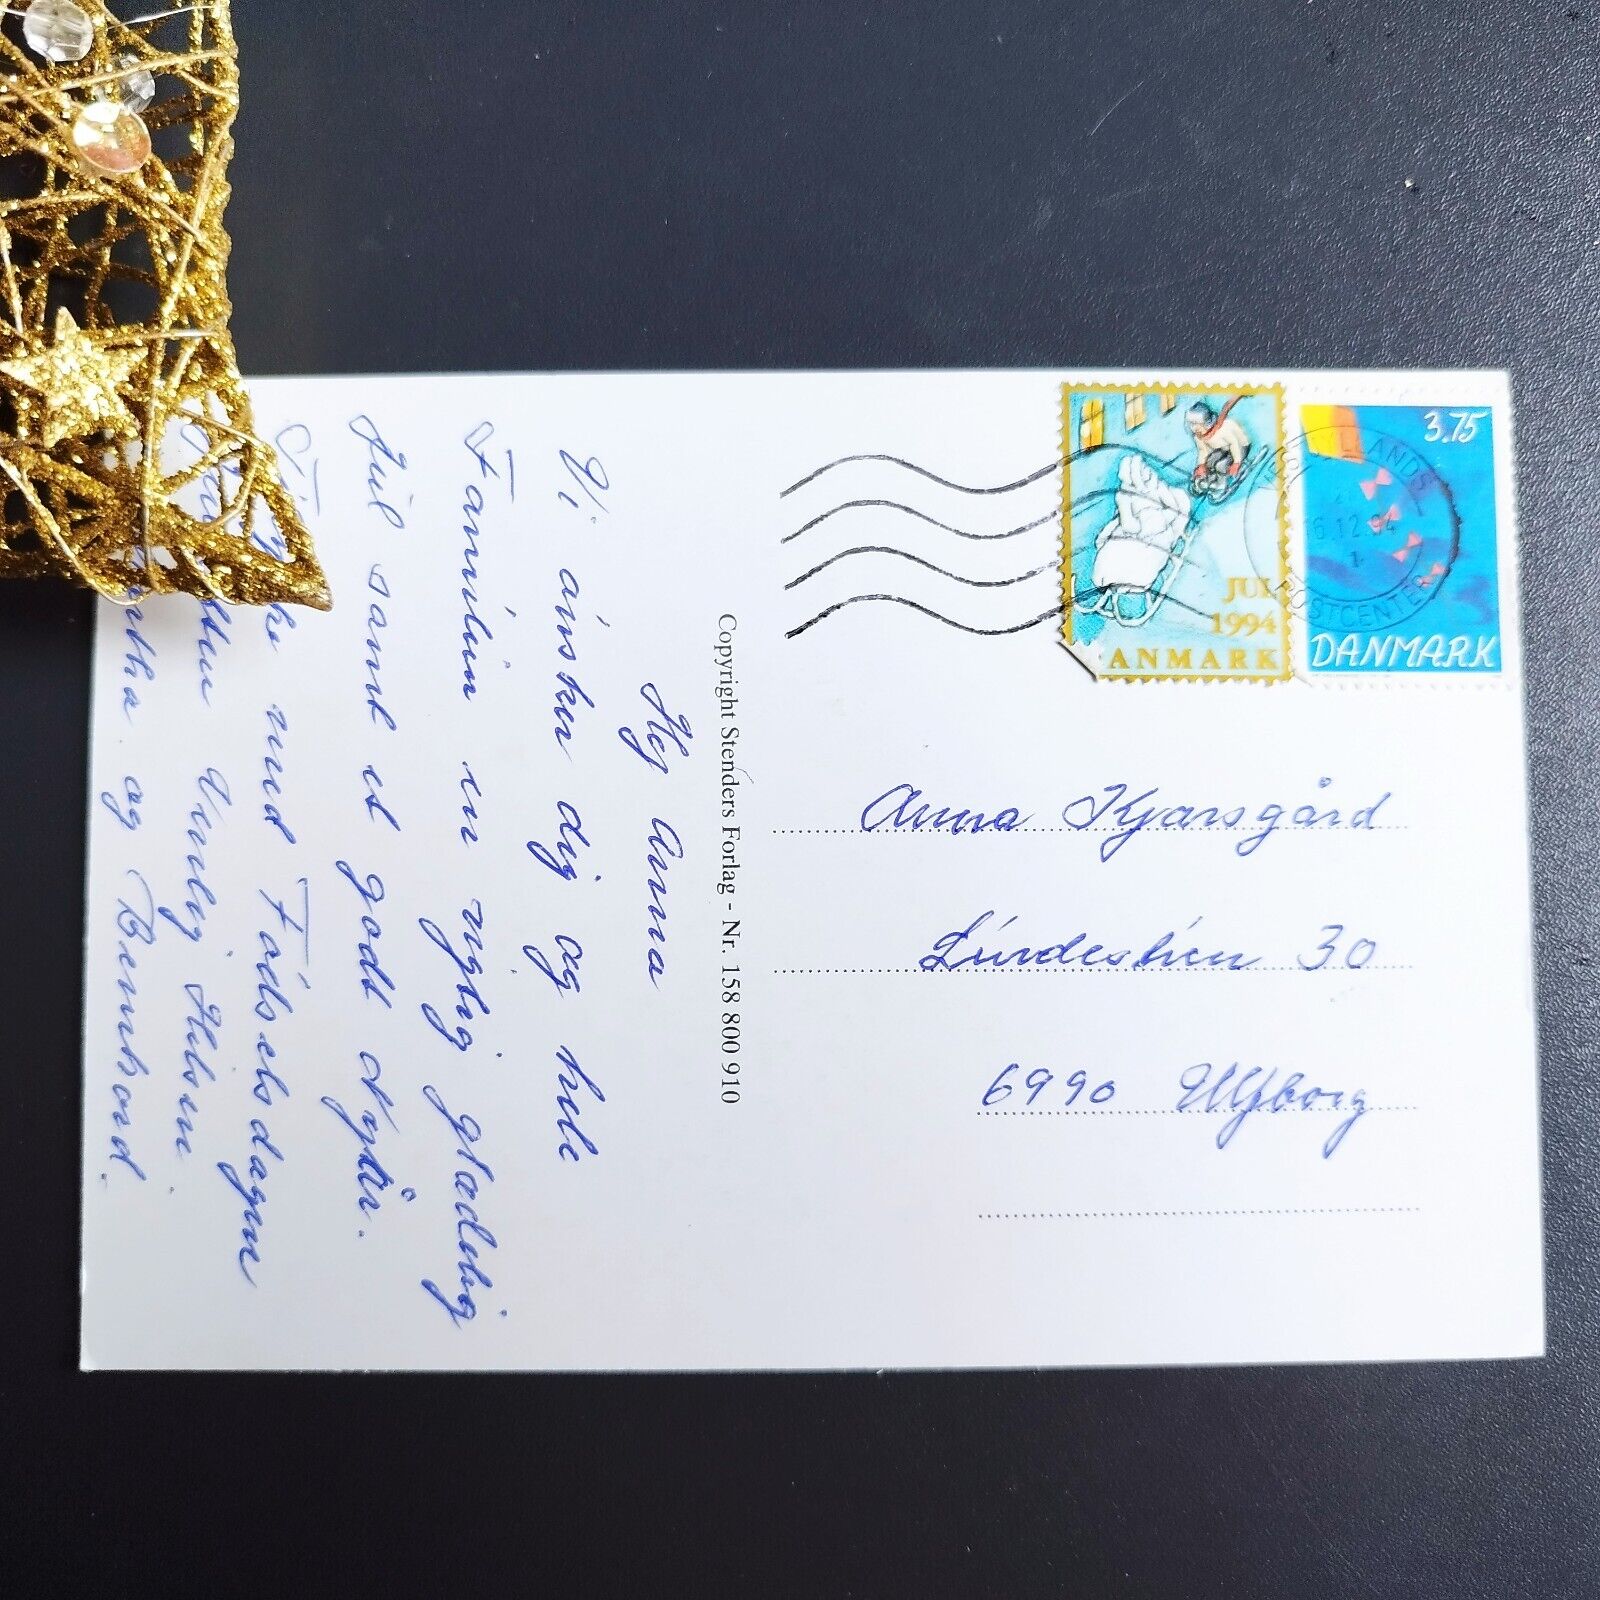 Hej Anna
Vi ønsker dig og hele
Familien en rigtig glædelig
Jul samt et godt Nytår.
med Fødselsdagen
Venlig Hilsen
og Bernhard.
Copyright Stenders Forlag - Nr. 158 800 910
JUL
1994
ANMARK
3.75
DANMARK
6.12.94
1
POSTCENTER
Anna Kjærsgård
Lindestien 30
6990 Ulfborg